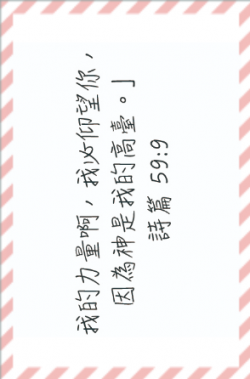 我的力量啊，我必仰望你，
因為神是我的高臺。」
詩篇 59:9